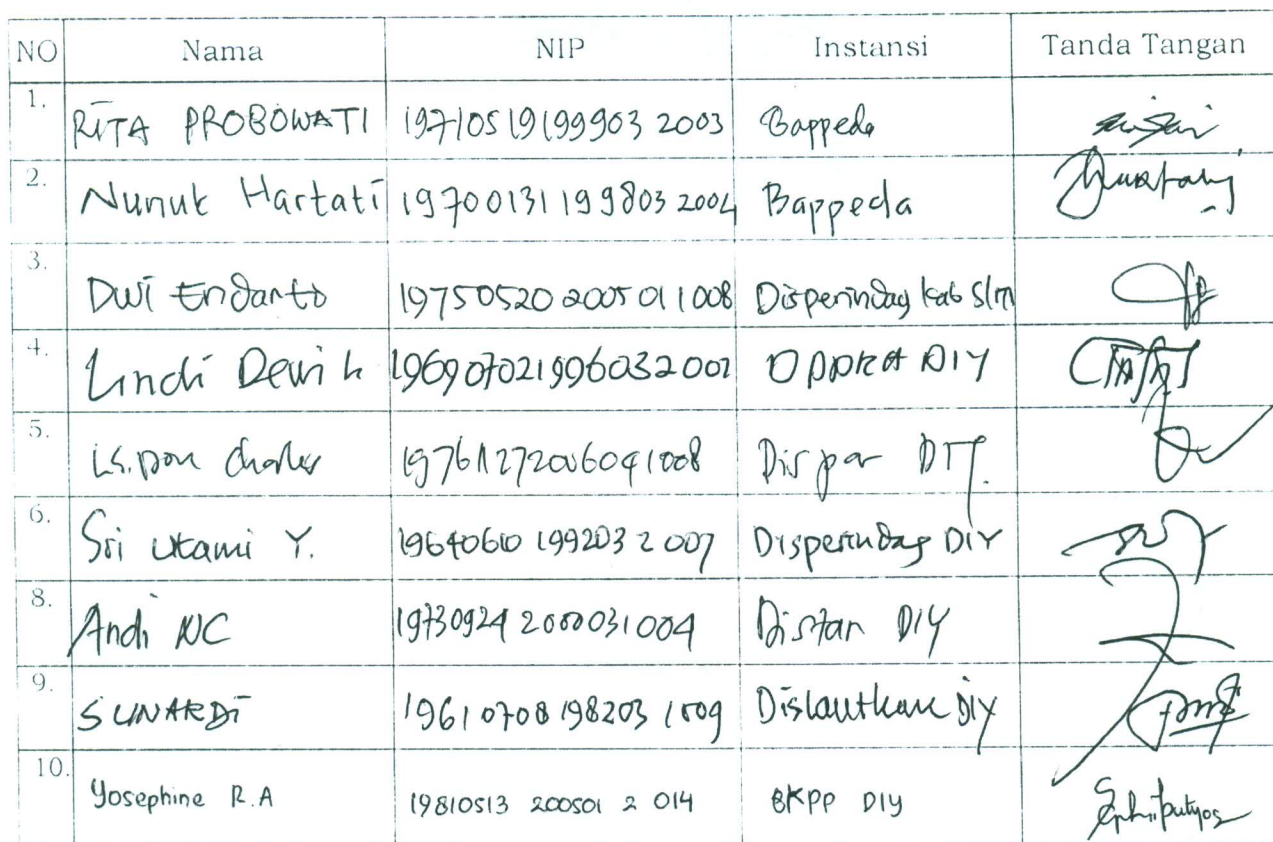 NO Nama NIP Instansi Tanda Tangan
1. RITA PROBOWATI 19710519199903 2003 Bappeda
2. Nunuk Hartati 19700131 199803 2004 Bappeda
3. Dwi Endarto 19750520 2005 011008 Disperindag Kab Slm
4. Lindi Dewi h 196907021996032002 DIY
5. 197611272006041008 Dispar DIY.
6. Sri Utami Y. 19640610 199203 2 007 Disperindag DIY
8. Andi NC 19730924 2000031004 Distan DIY
9. SUNARDI 19610708 198203 1009 Dislautkan DIY
10. Yosephine R.A 19810513 200501 2 014 BKPP DIY